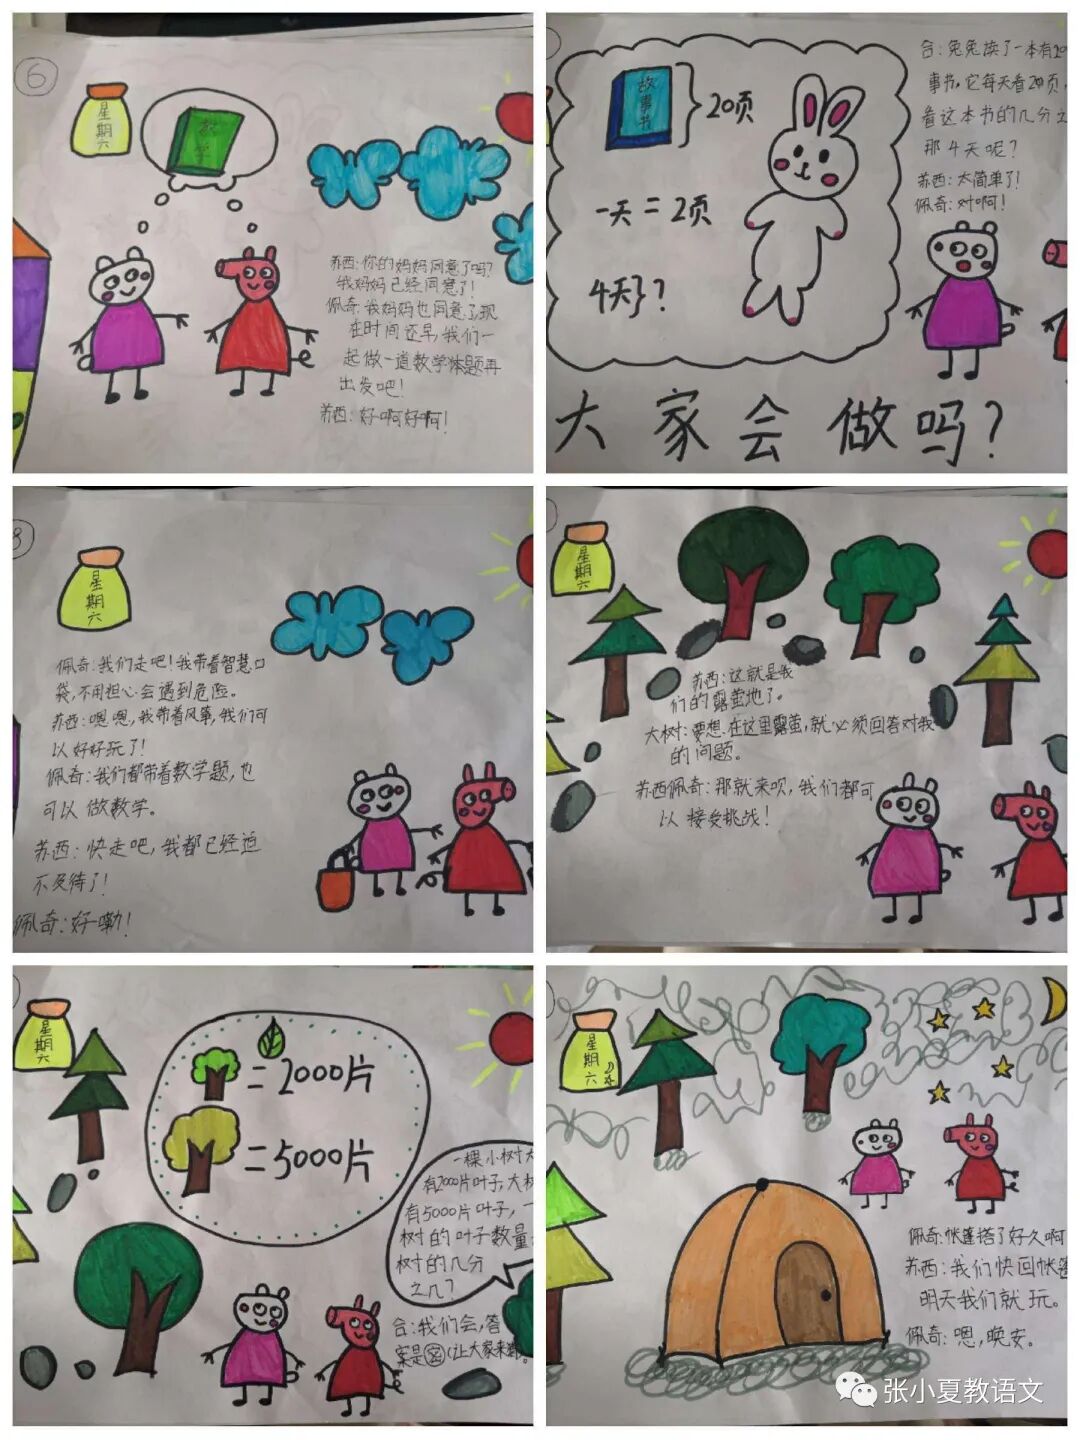 6
星期六
数学
苏西:你的妈妈同意了吗?
我妈妈已经同意了!
佩奇:我妈妈也同意了,现
在时间还早,我们一
起做一道数学体题再
出发吧!
苏西:好啊好啊!
故事书
20页
一天=2页
4天}?
合:兔兔读了一本有20
事书,它每天看2页,
看这本书的几分之
那4天呢?
苏西:太简单了!
佩奇:对啊!
大家会做吗?
8
星期六
佩奇:我们走吧!我带着智慧口
袋,不用担心会遇到危险。
苏西:嗯嗯,我带着风筝,我们可
以好好玩了!
佩奇:我们都带着数学题,也
可以做数学。
苏西:快走吧,我都已经迫
不及待了!
佩奇:好嘞!
星期六
苏西:这就是我
们的露萤地了。
大树:要想在这里露萤,就必须回答对我
的问题。
苏西佩奇:那就来呗,我们都可
以接受挑战!
星期六
=2000片
=5000片
一棵小树大
有2000片叶子,大树
有5000片叶子,一
树的叶子数量
树的几分
之几?
合:我们会,答
案是(让大家来
星期六
佩奇:帐篷搭了好久啊
苏西:我们快回帐篷
明天我们就玩。
佩奇:嗯,晚安。
张小夏教语文